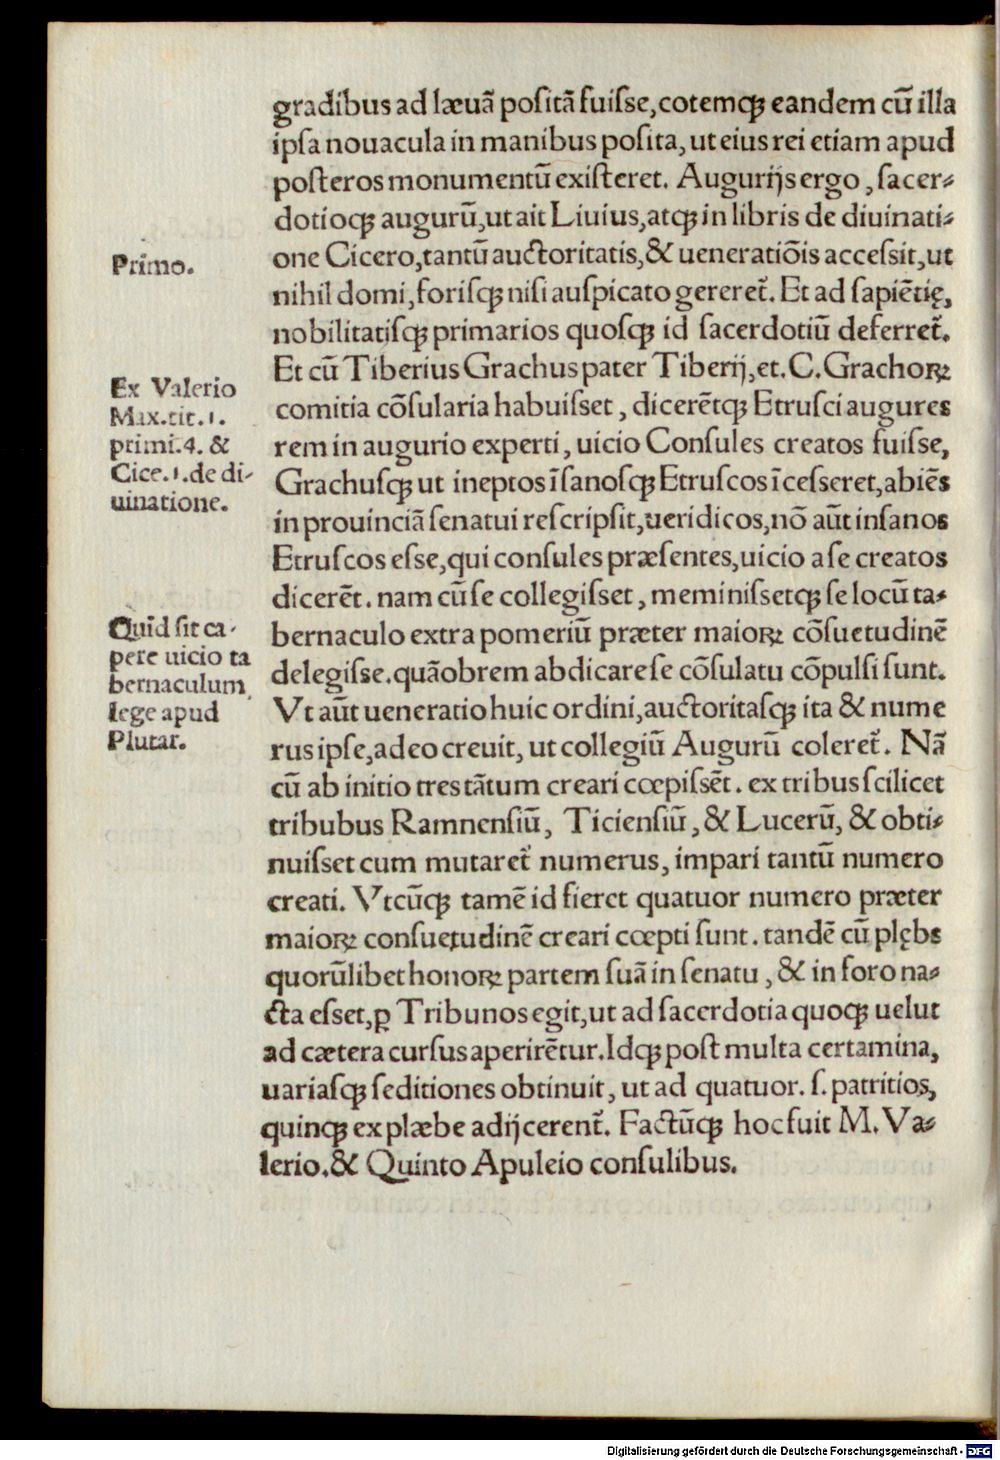 gradibus ad læuā poſitā fuiſse, cotemq́ꝫ eandem cū illa
ipſa nouacula in manibus poſita, ut eius rei etiam apud
poſteros monumentū exiſteret. Augurijs ergo, ſacer⸗
dotioqꝫ augurū, ut ait Liuius, atqꝫ in libris de diuinati⸗
Primo.
one Cicero, tantū auctoritatis, & ueneratiōis acceſsit, ut
nihil domi, foriſqꝫ niſi auſpicato gereret̄. Et ad ſapiētię,
nobilitatiſqꝫ primarios quoſqꝫ id ſacerdotiū deferret̄.
Et cū Tiberius Grachus pater Tiberij, et. C. Grachoꝝ
Ex Valerio
Max. tit. 1.
primi. 4. &
Cice. 1. de di⸗
uinatione.
comitia cōſularia habuiſset, dicerētqꝫ Etruſci augures
rem in augurio experti, uicio Conſules creatos fuiſse,
Grachuſqꝫ ut ineptos īſanoſqꝫ Etruſcos īceſseret, abiēs
in prouinciā ſenatui reſcripſit, ueridicos, nō aūt inſanos
Etruſcos eſse, qui conſules præſentes, uicio a ſe creatos
dicerēt. nam cū ſe collegiſset, meminiſsetqꝫ ſe locū ta⸗
Quid ſit ca⸗
pere uicio ta
bernaculum
lege apud
Plutar.
bernaculo extra pomeriū præter maioꝝ cōſuetudinē
delegiſse. quāobrem abdicare ſe cōſulatu cōpulſi ſunt.
Vt aūt ueneratio huic ordini, auctoritaſqꝫ ita & nume
rus ipſe, adeo creuit, ut collegiū Augurū coleret̄. Nā
cū ab initio tres tātum creari cœpiſsēt. ex tribus ſcilicet
tribubus Ramnenſiū, Ticienſiū, & Lucerū, & obti⸗
nuiſset cum mutaret̄ numerus, impari tantū numero
creati. Vtcūqꝫ tamē id fieret quatuor numero præter
maioꝝ conſuetudinē creari cœpti ſunt. tandē cū plębs
quorūlibet honoꝝ partem ſuā in ſenatu, & in foro na⸗
cta eſset, ꝑ Tribunos egit, ut ad ſacerdotia quoqꝫ uelut
ad cætera curſus aperirētur. Idqꝫ poſt multa certamina,
uariaſqꝫ ſeditiones obtinuit, ut ad quatuor. ſ. patritios,
quinqꝫ ex plæbe adijcerent̄. Factūqꝫ hoc fuit M. Va⸗
lerio. & Quinto Apuleio conſulibus.
Digitalisierung gefördert durch die Deutsche Forschungsgemeinschaft - DFG